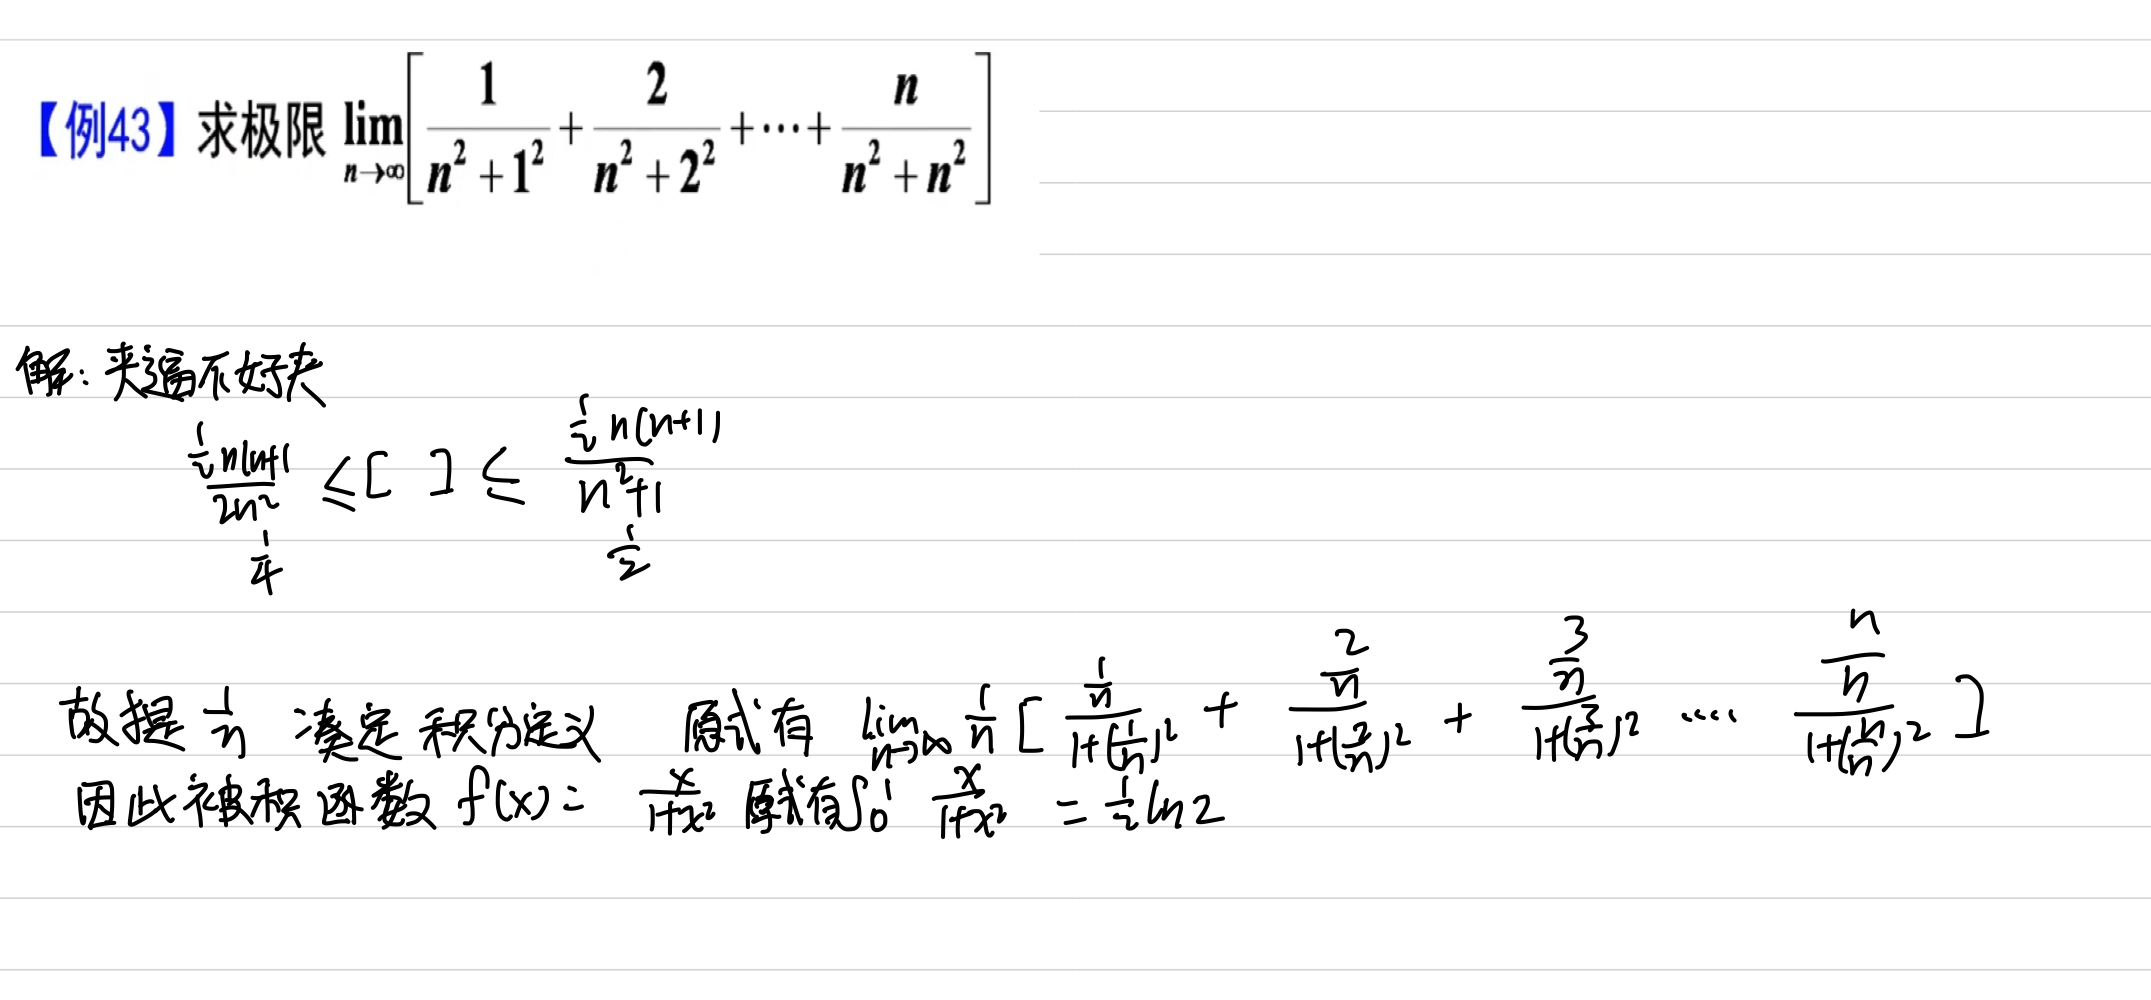 【例43】求极限 lim_{n→∞}[1/(n²+1²) + 2/(n²+2²) + ⋯ + n/(n²+n²)]
解: 夹逼不好夹
(½n(n+1)/(2n² ≤ [ ] ≤ (½n(n+1))/(n²+1)
¼ ½
故提 1/n 凑定积分定义 原式有 lim_{n→∞} 1/n [ (1/n)/(1+(1/n)²) + (2/n)/(1+(2/n)²) + (3/n)/(1+(3/n)²) ⋯⋯ (n/n)/(1+(n/n)²) ]
因此被积函数 f(x) = x/(1+x²) 原式有 ∫₀¹ x/(1+x²) = ½ ln2